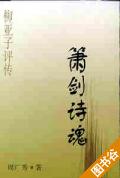 柳亚子评传
箫剑诗魂
周广秀·著
图书谷